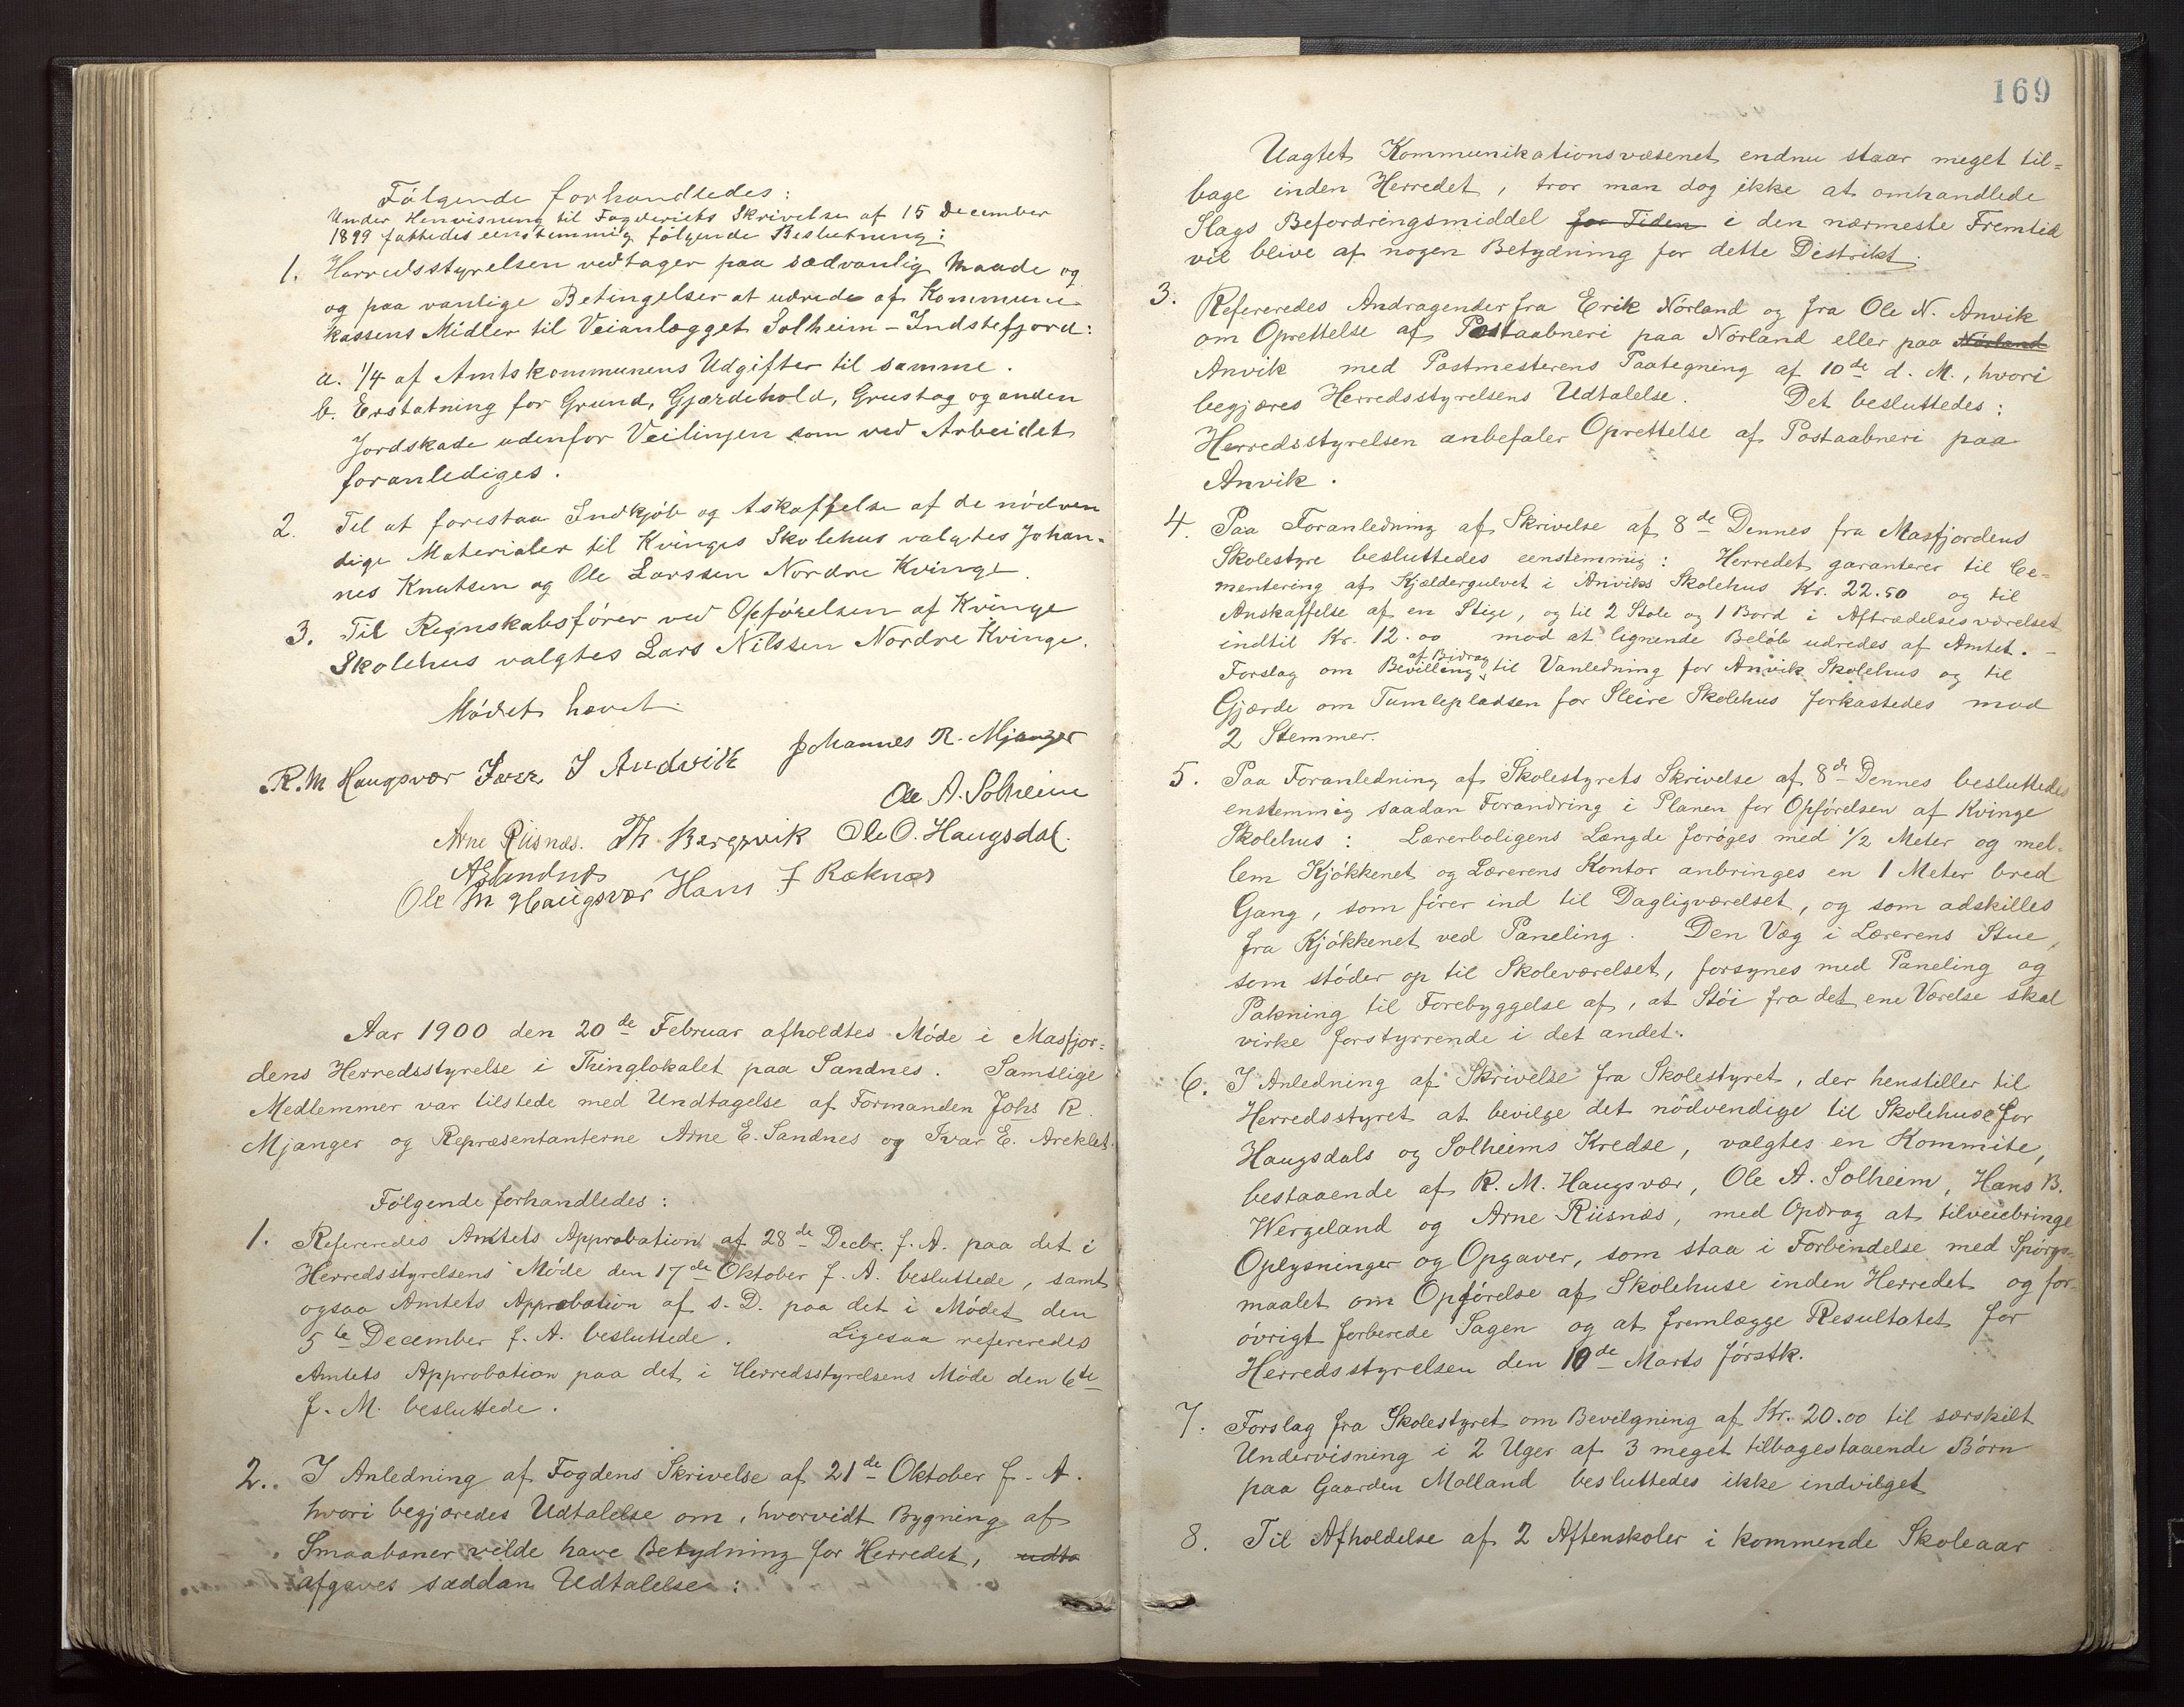 Følgende forhandledes:
Under Henvisning til Fogderiets Skrivelse af 15 December
1899 fattedes eenstemmig følgende Beslutning:
1. Herredsstyrelsen vedtager paa sædvanlig Maade og
og paa vanlige Betingelser at udrede af Kommune
kassens Midler til Veianlægget Solheim - Indstefjord:
a. 1/4 af Amtskommunens Udgifter til samme.
b. Erstatning for Grund, Gjærdehold, Grustag og anden
Jordskade udenfor Veilinjen som ved Arbeidet
foranlediges.
2. Til at forestaa Indkjøb og Askaffelse af de nødven
dige Materialer til Kvinges Skolehus valgtes Johan-
nes Knutsen og Ole Larssen Nordre Kvinge.
3. Til Regnskabsfører ved Opførelsen af Kvinge
Skolehus valgtes Lars Nilssen Nordre Kvinge.
Mødet hævet.
R. M Haugsvær Ivar I Andvik Johannes R. Mjanger
Ole A. Solheim
Arne Riisnæs. Th. Bergsvik Ole O. Haugsdal.
Ole M Haugsvær Hans J Røknæs
Aar 1900 den 20de Februar afholdtes Møde i Masfjor=
dens Herredsstyrelse i Thinglokalet paa Sandnes. Samtlige
Medlemmer var tilstede med Undtagelse af Formanden Johs R.
Mjanger og Repræsentanterne Arne E. Sandnes og Ivar E. Areklet.
Følgende forhandledes:
1. Refereredes Amtets Approbation af 28de Decbr. f. A. paa det i
Herredsstyrelsens Møde den 17de Oktober f. A. besluttede, samt
ogsaa Amtets Approbation af s. D. paa det i Mødet den
5te December f. A. besluttede. Ligesaa refereredes
Amtets Approbation paa det i Herredsstyrelsens Møde den 6te
f. M. besluttede.
2. I Anledning af Fogdens Skrivelse af 21de Oktober f. A.
hvori begjæredes Udtalelse om, hvorvidt Bygning af
Smaabaner vilde have Betydning for Herredet, udta
afgaves saadan Udtalelse:
169
Uagtet Kommunikationsvæsenet endnu staar meget til=
bage inden Herredet, tror man dog ikke at omhandlede
Slags Befordringsmiddel for Tiden i den nærmeste Fremtid
vil blive af nogen Betydning for dette Distrikt.
3. Refereredes Andragender fra Erik Nørland og fra Ole N. Anvik
om Oprettelse af Postaabneri paa Nørland eller paa Nørland
Anvik med Postmesterens Paategning af 10de d. M., hvori
begjæres Herredsstyrelsens Udtalelse. Det besluttedes:
Herredsstyrelsen anbefaler Oprettelse af Postaabneri paa
Anvik.
4. Paa Foranledning af Skrivelse af 8de Dennes fra Masfjordens
Skolestyre besluttedes eenstemmig: Herredet garanterer til Ce=
mentering af Kjældergulvet i Anviks Skolehus Kr. 22.50 og til
Anskaffelse af en Stige, og til 2 Stole og 1 Bord i Aftrædelsesværelset
indtil Kr. 12.00 mod at lignende Beløb udredes af Amtet. -
Forslag om Bevilling af Bidrag til Vanledning for Anvik Skolehus og til
Gjærde om Tumlepladsen for Sleire Skolehus forkastedes mod
2 Stemmer.
5. Paa Foranledning af Skolestyrets Skrivelse af 8de Dennes besluttedes
enstemmig saadan Forandring i Planen for Opførelsen af Kvinge
Skolehus: Lærerboligens Længde forøges med 1/2 Meter og mel-
lem Kjøkkenet og Lærerens Kontor anbringes en 1 Meter bred
Gang, som fører ind til Dagligværelset, og som adskilles
fra Kjøkkenet ved Paneling. Den Væg i Lærerens Stue,
som støder op til Skoleværelset, forsynes med Paneling og
Pakning til Forebyggelse af, at Støi fra det ene Værelse skal
virke forstyrrende i det andet.
6. I Anledning af Skrivelse fra Skolestyret, der henstiller til
Herredsstyret at bevilge det nødvendige til Skolehuse for
Haugsdals og Solheims Kredse, valgtes en Kommite,
bestaaende af R. M. Haugsvær, Ole A. Solheim, Hans B.
Wergeland og Arne Riisnæs, med Opdrag at tilveiebringe
Oplysninger og Opgaver, som staa i Forbindelse med Spørgs=
maalet om Opførelse af Skolehuse inden Herredet og for-
øvrigt forberede Sagen og at fremlægge Resultatet for
Herredsstyrelsen den 10de Marts førstk.
7. Forslag fra Skolestyret om Bevilgning af Kr. 20.00 til særskilt
Undervisning i 2 Uger af 3 meget tilbagestaaende Børn
paa Gaarden Molland besluttedes ikke indvilget
8. Til Afholdelse af 2 Aftenskoler i kommende Skoleaar